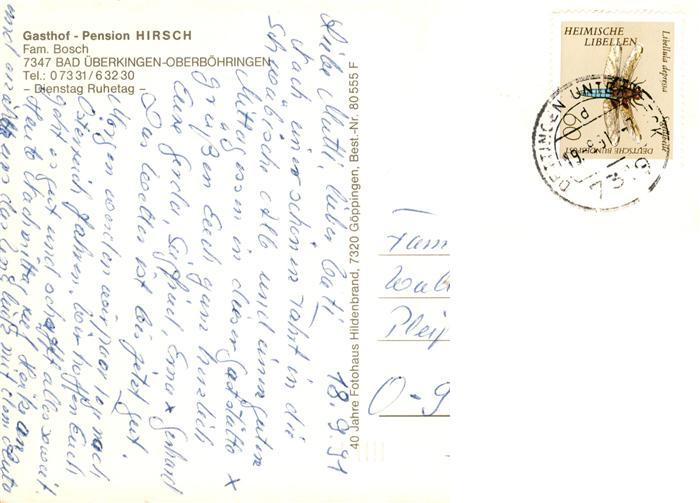 Gasthof - Pension HIRSCH
Fam. Bosch
7347 BAD ÜBERKINGEN-OBERBÖHRINGEN
Tel.: 0 73 31 / 6 32 30
– Dienstag Ruhetag –
Liebe Mutti, lieber Vati,
Nach einer schönen Fahrt in die
Schwäbische Alb und einem guten
Mittagessen in dieser Gaststätte x
grüßen Euch ganz herzlich
Eure Gerda, Siegfried, Erna x Gerhard
Das Wetter ist bis jetzt gut.
Morgen wollen wir paar Tag nach
Österreich fahren. Wir hoffen Euch
geht es gut und schafft alles soweit.
Heute Nachmittag rief Heike an
und erzählte
mit dem Auto
18.9.91
40 Jahre Fotohaus Hildenbrand, 7320 Göppingen, Best.-Nr. 80 555 F
Fam
Pleiß
O-9
HEIMISCHE
LIBELLEN
Libellula depressa
DEUTSCHE BUNDESPOST
60
DETTINGEN UNTER TECK
19.-9.91
7319